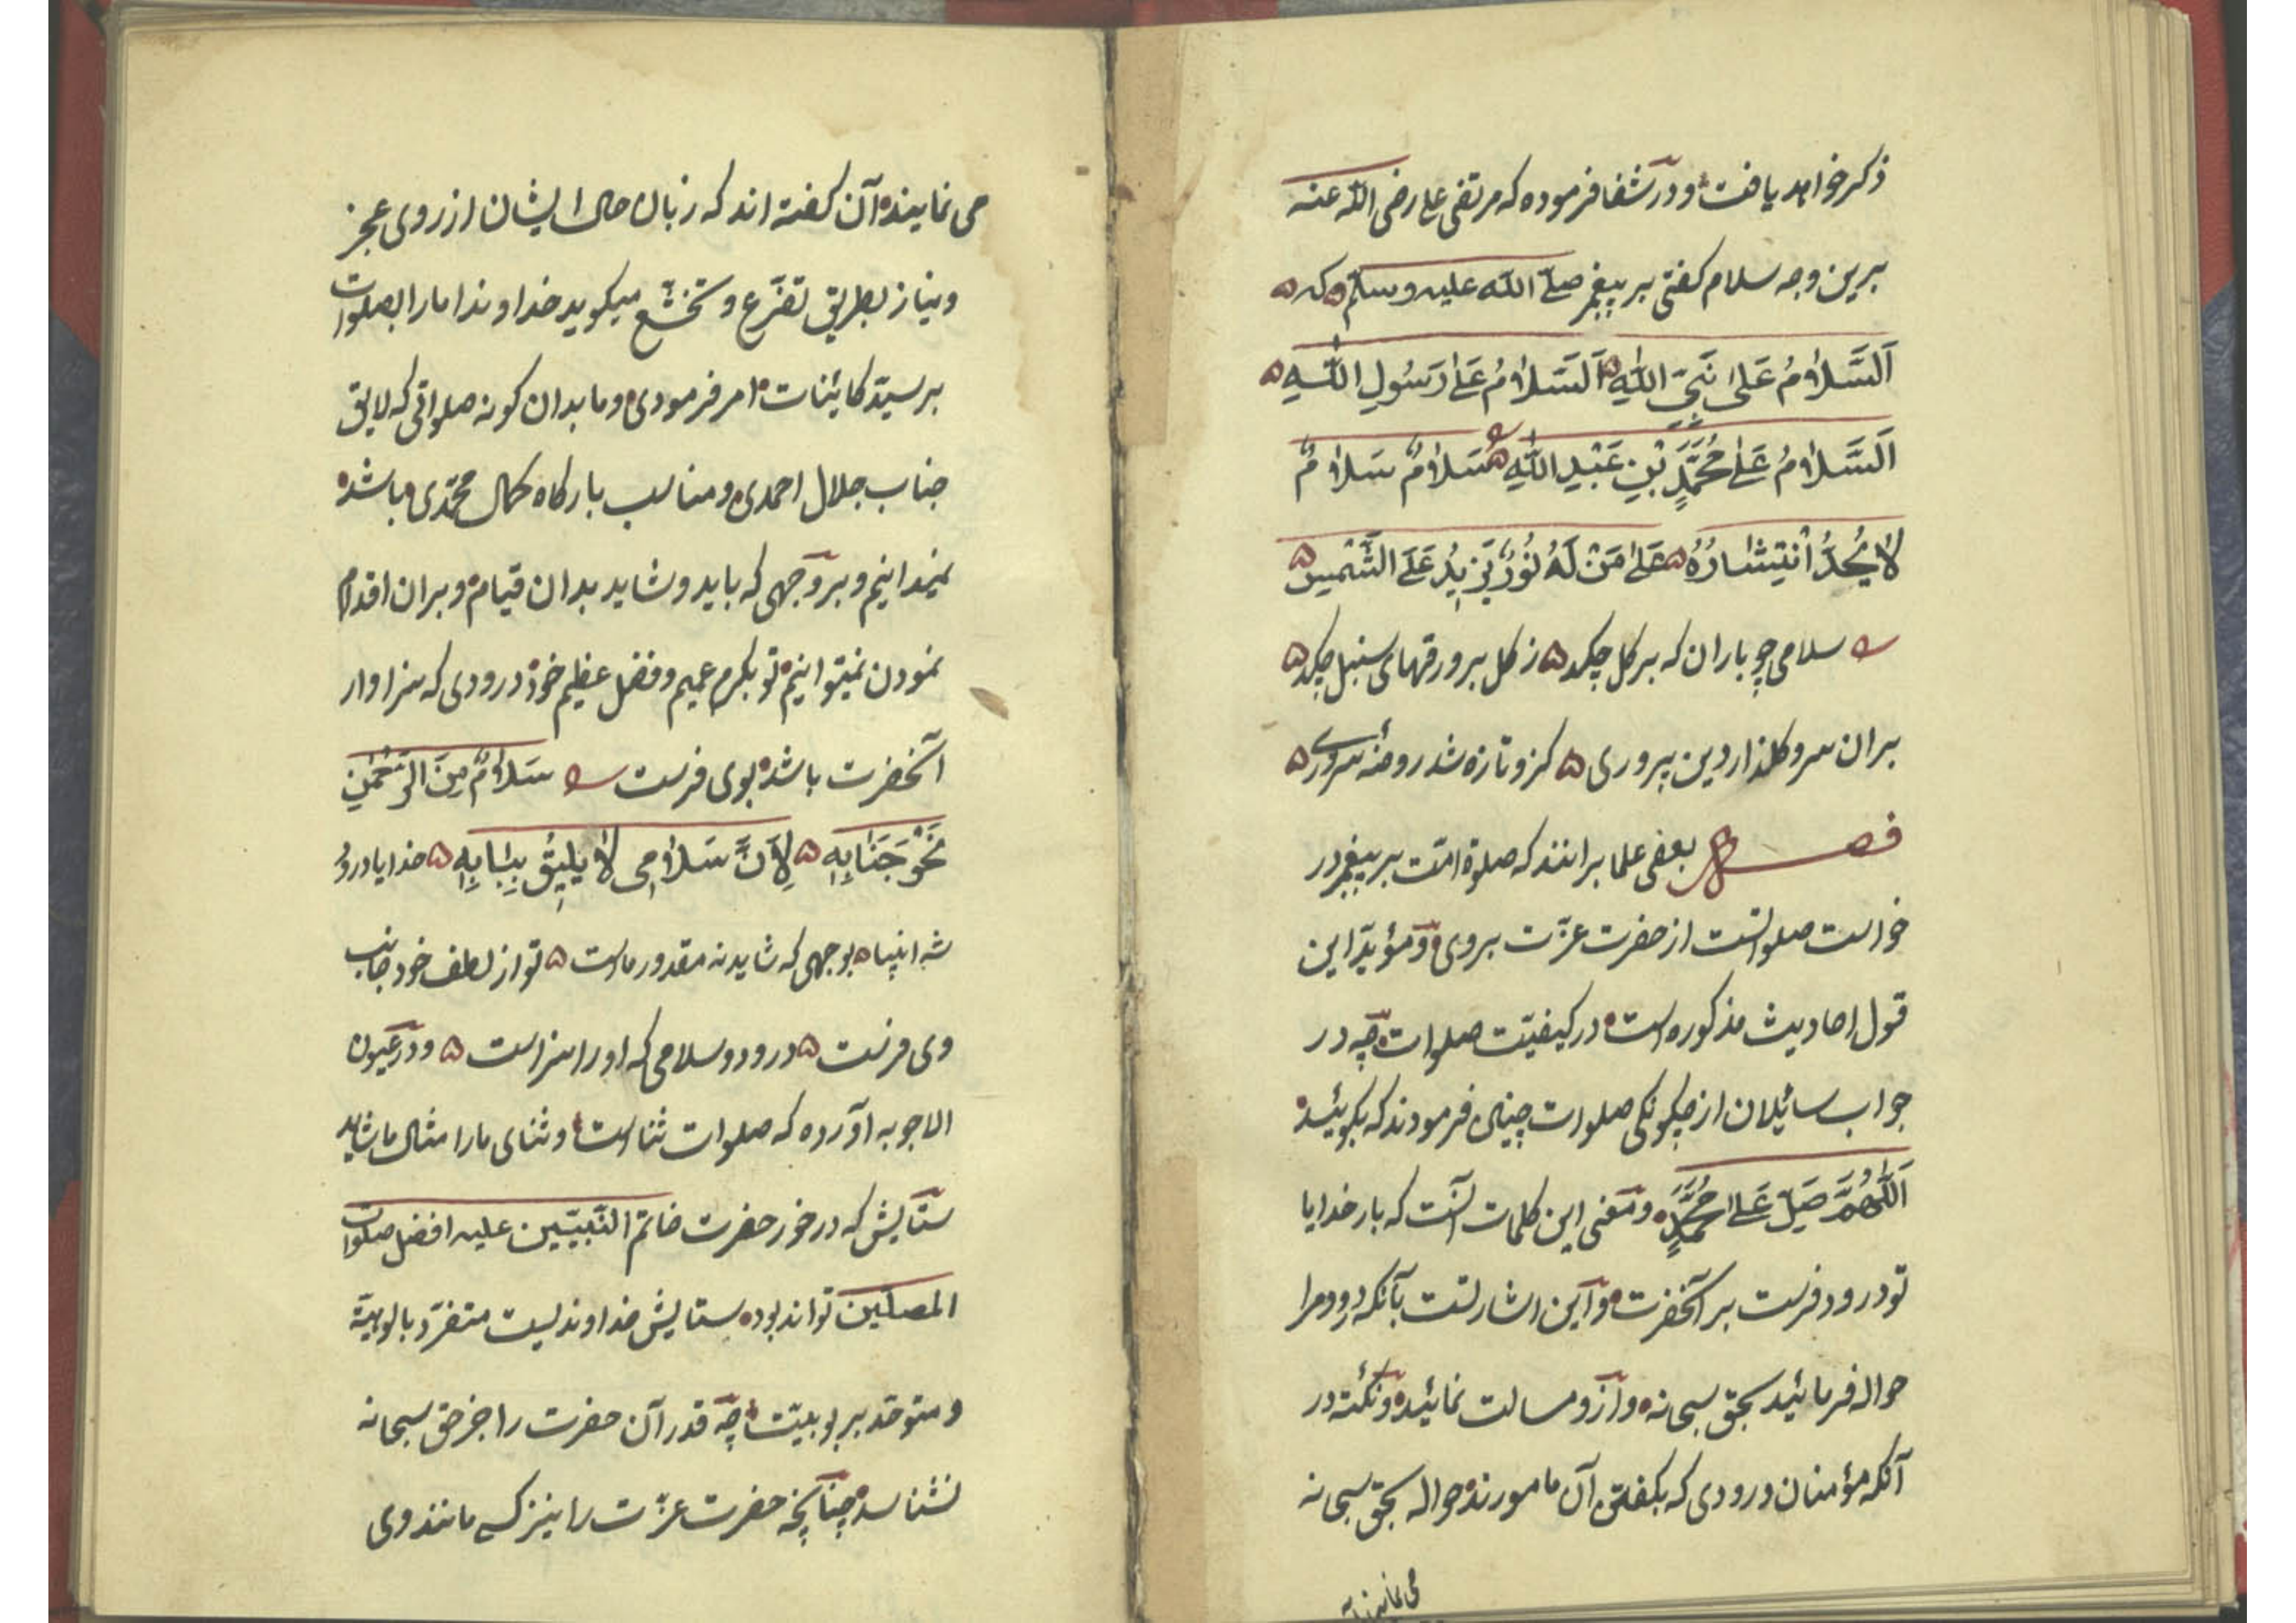 ذکر خواهد یافت و در شفا فرموده که مرتضی علی رضی الله عنه
برین وجه سلام گفتی بر پیغمبر صلی الله علیه وسلم که
اَلسَّلامُ عَلیٰ نَبِیِّ اللّٰهِ اَلسَّلامُ عَلیٰ رَسُولِ اللّٰهِ
اَلسَّلامُ عَلیٰ مُحَمَّدِ بْنِ عَبْدِ اللّٰهِ سَلامٌ سَلامٌ
لا یُحَدُّ انْتِشارُهُ عَلیٰ مَنْ لَهُ نُورٌ یَزِیدُ عَلَی الشَّمْسِ
سلامی چو باران که بر کل چکد ز کل بر ورقهای سنبل چکد
بران سرو کلذار دین پروری کزو تازه شد روضهٔ سروری
فصل بعضی علما برانند که صلوة امّت بر پیغمبر در
خواست صلواتست از حضرت عزّت بر وی و مؤیّد این
قول احادیث مذکوره است در کیفیّت صلوات چه در
جواب سائلان از چکونکی صلوات چنین فرمودند که بکوئید
اَللّٰهُمَّ صَلِّ عَلیٰ مُحَمَّدٍ و معنی این کلمات آنست که بار خدایا
تو درود فرست بر آنحضرت و این اشارتست بآنکه درود مرا
حواله فرمائید بحق سبحانه و ازو مسالت نمائید و نکته در
آنکه مؤمنان درودی که بکفتن آن مامورند حواله بحق سبحانه
می نمایند
می نمایند آن کفته اند که زبان حال ایشان از روی عجز
و نیاز بطریق تضرّع و تخشّع میکوید خداوندا ما را بصلوات
بر سیّد کائنات امر فرمودی و ما بدان کونه صلواتی که لایق
جناب جلال احمدی و مناسب بارکاه کمال محمّدی باشد
نمیدانیم و بر وجهی که باید و شاید بدان قیام و بران اقدام
نمودن نمیتوانیم تو بکرم عمیم و فضل عظیم خود درودی که سزاوار
آنحضرت باشد بوی فرست سَلامٌ مِنَ الرَّحْمٰنِ
نَحْوَ جَنابِهِ لِاَنَّ سَلامِی لا یَلِیقُ بِبابِهِ خدایا درود
شه انبیا بوجهی که شاید نه مقدور ماست تو از لطف خود جانب
وی فرست درود و سلامی که او را سزاست و در عیون
الاجوبه آورده که صلوات ثناست و ثنای ما را امثال ما شاید
ستایش که در خور حضرت خاتم النّبیّین علیه افضل صلوات
المصلین تواند بود ستایش خداوندیست متفرّد بالوهیّة
و متوحّد بربوبیّت چه قدر آن حضرت را جز حق سبحانه
نشناسد چنانچه حضرت عزّت را نیز کسی مانند وی